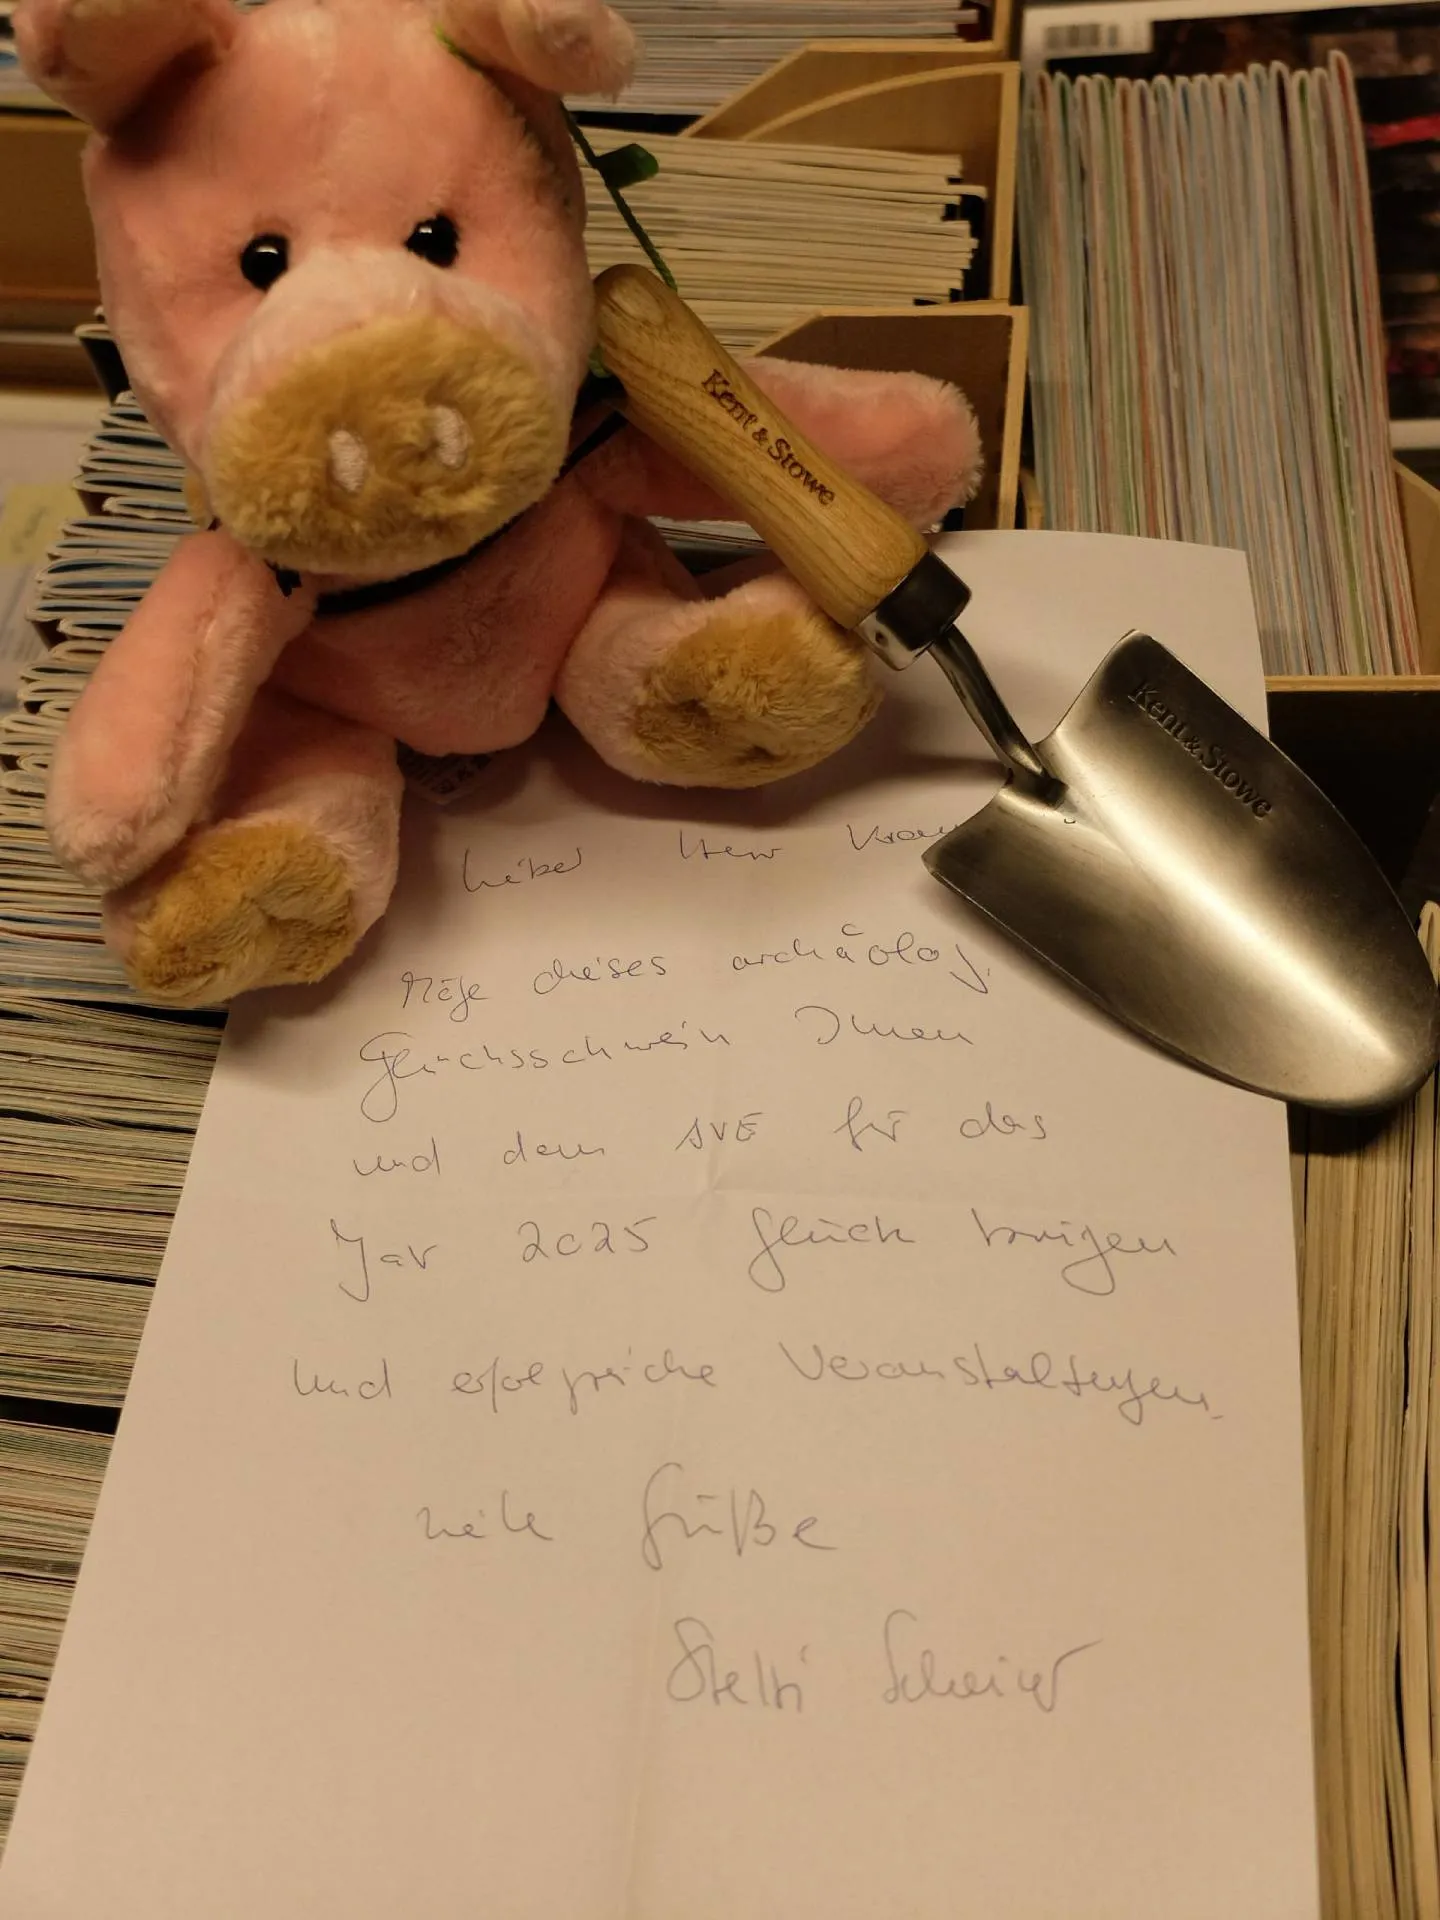 Kent & Stowe
Kent & Stowe
Lieber Herr
Möge dieses archäolog.
Glücksschwein Ihnen
und dem AVE für das
Jar 2025 Glück bringen
und erfolgreiche Veranstaltungen.
viele Grüße
Steffi